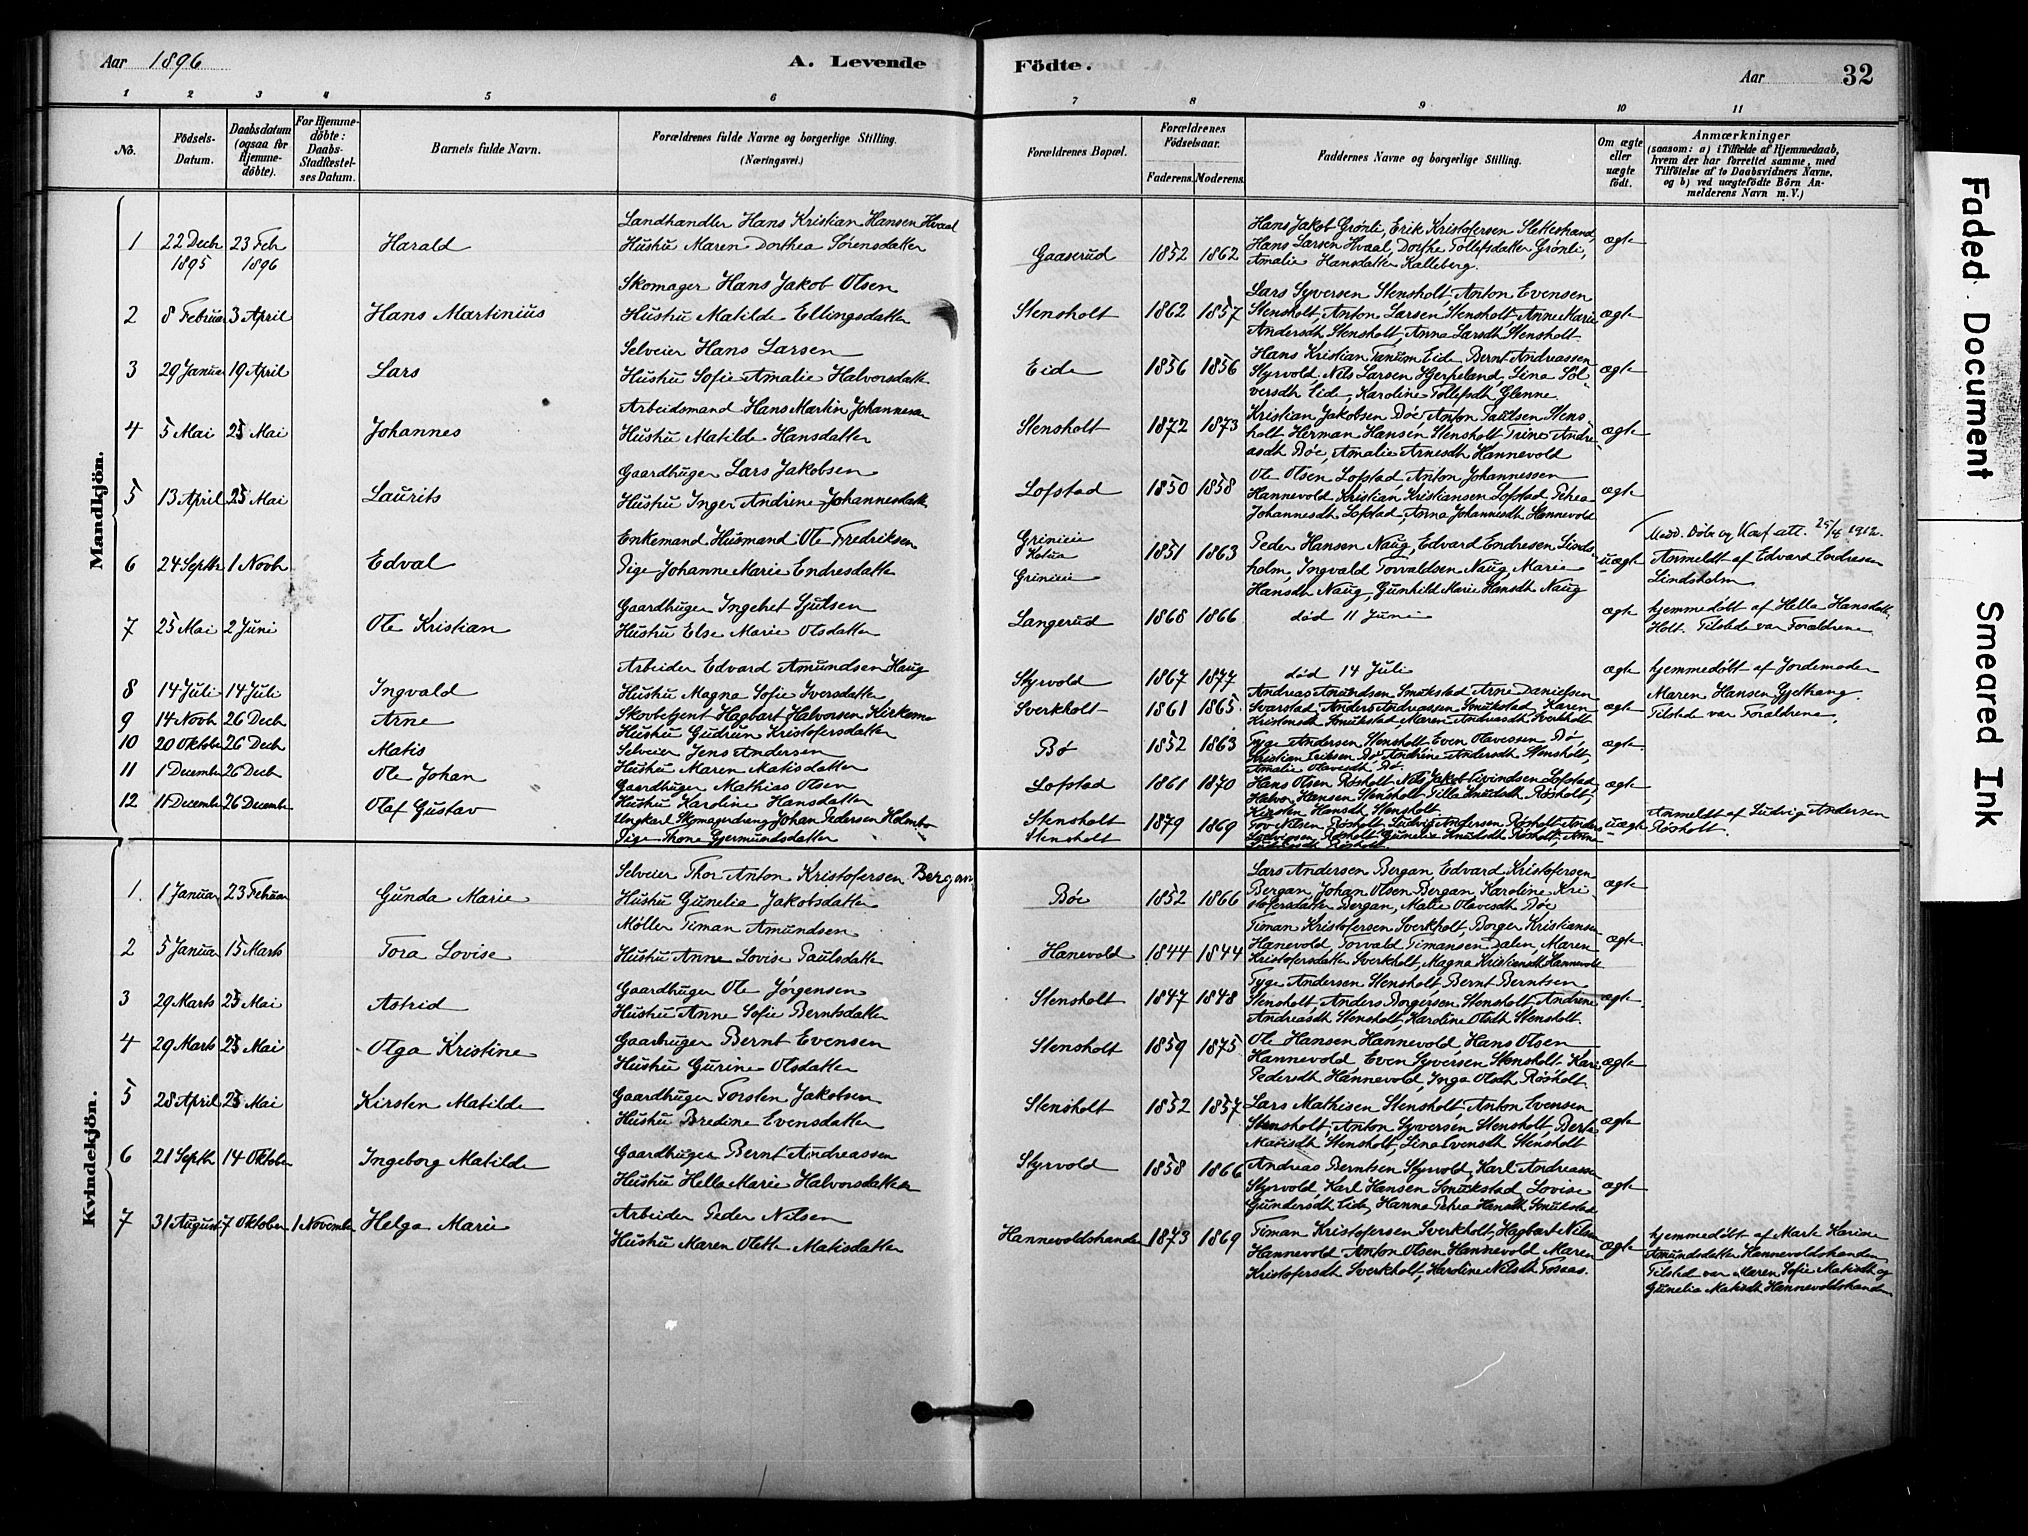 Aar 1896
A. Levende Födte.
Aar 32
1 2 3 4 5 6 7 8 9 10 11
No.
Födsels-Datum.
Daabsdatum (ogsaa for Hjemmedöbte).
For Hjemmedöbte: Daabs-Stadfestelses Datum.
Barnets fulde Navn.
Forældrenes fulde Navne og borgerlige Stilling. (Næringsvei.)
Forældrenes Bopæl.
Forældrenes Födselsaar.
Faderens. Moderens.
Faddernes Navne og borgerlige Stilling.
Om ægte eller uægte födt.
Anmærkninger
(saasom: a) i Tilfælde af Hjemmedaab, hvem der har forrettet samme, med Tilföielse af to Daabsvidners Navne, og b) ved uægtefödte Börn Anmelderens Navn m. V.)
Mandkjön.
1 22 Decb 1895 23 Feb 1896 Harald
Landhandler Hans Kristian Hansen Hvaal
Hustru Maren Dorthea Sörensdatter
Gaaserud 1852 1862
Hans Jakob Grönli, Erik Kristofersen Slettestrand,
Hans Larsen Hvaal, Dorthe Tollefsdatter Grönli,
Amalie Hansdatter Kalleberg.
ægte
2 8 Februar 3 April Hans Martinius
Skomager Hans Jakob Olsen
Hustru Matilde Ellingsdatter
Stensholt 1862 1857
Lars Syversen Stensholt, Anton Evensen
Stensholt, Anton Larsen Stensholt, Anne Marie
Andersdt Stensholt, Anna Larsdt Stensholt
ægte
3 29 Januar 19 April Lars
Selveier Hans Larsen
Hustru Sofie Amalie Halvorsdatter
Eide 1856 1856
Hans Kristian Tanum Eide, Bernt Andreassen
Styrvold, Nils Larsen Hjerpeland, Lina Söl-
versdt Eide, Karoline Tollefsdt Glenne
ægte
4 5 Mai 25 Mai Johannes
Arbeidsmand Hans Martin Johannesen
Hustru Matilde Hansdatter
Stensholt 1872 1873
Kristian Jakobsen Böe, Anton Paulsen Stens-
holt, Herman Hansen Stensholt, Trine Andre-
asdt Böe, Amalie Arnesdt Hannevold
ægte
5 13 April 25 Mai Laurits
Gaardbruger Lars Jakobsen
Hustru Inger Andrine Johannesdatter
Lofstad 1850 1858
Ole Olsen Lofstad, Anton Johannessen
Hannevold, Kristian Kristiansen Lofstad, Petrea
Johannesdt Lofstad, Anna Johannesdt Hannevold
ægte
6 24 Septbr 1 Novb Edval
Enkemand Husmand Ole Fredriksen
Pige Johanne Marie Endresdatter
1851 1863
Peder Hansen Naug, Edvard Endresen Linds-
holm, Ingvald Torvaldsen Naug, Marie
Hansdt Naug, Gunhild Marie Hansdt Naug
uægte
Medd. Döbe og Konf att. 25/4 1912.
Anmeldt af Edvard Endresen
Lindsholm
7 25 Mai 2 Juni Ole Kristian
Gaardbruger Ingebret Sjulsen
Hustru Else Marie Olsdatter
Langerud 1868 1866
död 11 Juni
ægte
hjemmedöbt af Hella Hansdatter
Holt. Tilstede var Forældrene
8 14 Juli 14 Juli Ingvald
Arbeider Edvard Amundsen Haug
Hustru Magna Sofie Iversdatter
Styrvold 1867 1877
död 14 Juli
ægte
hjemmedöbt af Jordemoder
Maren Hansen Gjethang.
Tilsted var Forældrene.
9 14 Novb 26 Decb Arne
Skovbetjent Hagbart Halvorsen Kirkemo
Hustru Gudrun Kristofersdatter
Sverkholt 1861 1865
Andreas Amundsen Smukstad, Arne Danielsen
Svarstad, Anders Andreassen Smukstad, Karen
Kristensdt Smukstad, Maren Andreasdt Sverkholt
ægte
10 20 Oktober 26 Decb Matis
Selveier Jens Andersen
Hustru Maren Matisdatter
Bö 1852 1863
Tyge Andersen Stensholt, Even Olavessen Bö
Kristian Eriksen Bö, Andrine Andersdt Stensholt,
Amalie Olavesdt Bö
ægte
11 1 December 26 Decb Ole Johan
Gaardbruger Mathias Olsen
Hustru Karoline Hansdatter
Lofstad 1861 1870
Hans Olsen Rösholt, Nils Jakob Eivindsen Lofstad
Halvor Hansen Stensholt, Tilla Knudsdt Rösholt,
Kirsten Hansdt Stensholt
ægte
12 11 December 26 December Olaf Gustav
Ungkarl Skomagerdreng Johan Pedersen Holmbo
Pige Thone Gjermundsdatter
Stensholt
Stensholt
1879 1869
Tov Nilsen Rösholt, Ludvig Andersen Rösholt, Anders
Ludvigsen Rösholt, Gunelie Knudsdt Rösholt, Anne
uægte
Anmeldt af Ludvig Andersen
Rösholt
Kvindekjön.
1 1 Januar 23 Februar Gunda Marie
Selveier Thor Anton Kristofersen Bergan
Hustru Gunelia Jakobsdatter
Böe 1852 1866
Lars Andersen Bergan, Edvard Kristofersen
Bergan, Johan Olsen Bergan, Karoline Kri-
stofersdatter Bergan, Malie Olavesdt Böe
ægte
2 5 Januar 15 Marts Tora Lovise
Möller Timan Amundsen
Hustru Anne Lovise Paulsdatter
Hanevold 1844 1844
Timan Kristofersen Sverkholt, Borger Kristiansen
Hanevold, Torvald Timansen Dalen, Maren
Kristofersdatter Sverkholt, Magna Kristiansdt Hannevold
ægte
3 29 Marts 25 Mai Astrid
Gaardbruger Ole Jörgensen
Hustru Anne Sofie Berntsdatter
Stensholt 1847 1848
Tyge Andersen Stensholt, Bernt Berntsen
Stensholt, Anders Borgersen Stensholt, Andrine
Andreasdt Stensholt, Karoline Olsdt Stensholt.
ægte
4 29 Marts 25 Mai Olga Kristine
Gaarbruger Bernt Evensen
Hustru Gurine Olsdatter
Stensholt 1859 1875
Ole Hansen Hannevold, Hans Olsen
Hannevold, Even Syversen Stensholt, Kari
Pedersdt Hannevold, Inga Olsdt Rösholt
ægte
5 28 April 25 Mai Kirsten Matilde
Gaardbruger Torsten Jakobsen
Hustru Bredine Evensdatter
Stensholt 1852 1857
Lars Mathisen Stensholt, Anton Evensen
Stensholt, Anton Syversen Stensholt, Berte
Marisdt Stensholt, Lina Evensdt Stensholt
ægte
6 21 Septb 14 Oktober Ingeborg Matilde
Gaardbruger Bernt Andreassen
Hustru Hella Marie Halvorsdatter
Styrvold 1858 1866
Andreas Berntsen Styrvold, Karl Andreassen
Styrvold, Karl Hansen Smukstad, Lovise
Gundersdt Eide, Hanna Petrea Hansdt Smukstad
ægte
7 31 August 7 Oktober 1 November Helga Marie
Arbeider Peder Nilsen
Hustru Maren Olette Matisdatter
Hannevoldstranden 1873 1869
Timan Kristofersen Sverkholt, Hagbart Nilsen
Hannevold, Anton Olsen Hannevold, Maren
Kristofersdt Sverkholt, Karoline Nilsdt Tosaas.
ægte
hjemmedöbt af Marte Karine
Amundsdatter Hannevoldstranden
Tilsted var Maren Sofie Matisdt og
Gunelia Matisdt Hannevoldstranden
Faded Document
Smeared Ink